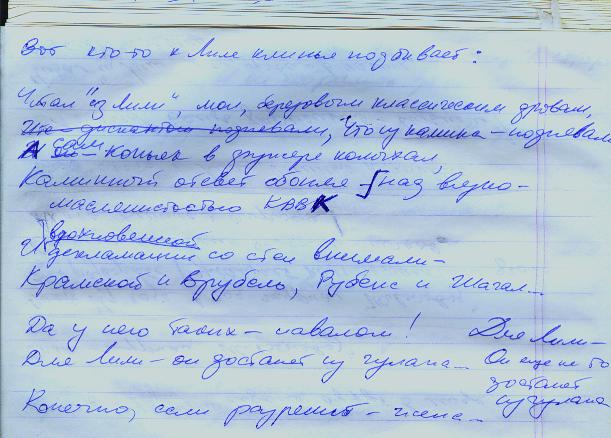 Вот кто-то к Лиле клинья подбивает:
Читал "из Лили", мол, березовым классическим дровам,
Что дискантом подпевали, Что у камина - подпевали
А сам - Коньяк в фужере колыхал,
Каминный отсвет обоняя над вязко-
маслянистостью КВВК
вдохновенной
И декламации со стен внимали -
Крамской и Врубель, Рубенс и Шагал...
Да у него таких - навалом! Для Лили -
Для Лили - он достанет из чулана... Он еще не то
достанет
из чулана
Конечно, если разрешит - жена...